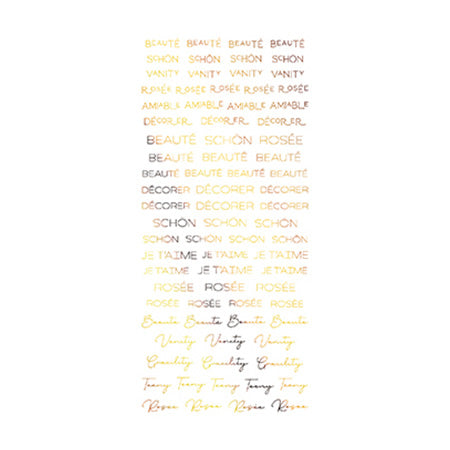 BEAUTÉ BEAUTÉ BEAUTÉ BEAUTÉ
SCHÖN SCHÖN SCHÖN SCHÖN
VANITY VANITY VANITY VANITY
ROSÉE ROSÉE ROSÉE ROSÉE ROSÉE
AMIABLE AMIABLE AMIABLE AMIABLE
DÉCORER DÉCORER DÉCORER
BEAUTÉ SCHÖN ROSÉE
BEAUTÉ BEAUTÉ BEAUTÉ
BEAUTÉ BEAUTÉ BEAUTÉ BEAUTÉ
DÉCORER DÉCORER DÉCORER
DÉCORER DÉCORER DÉCORER
SCHÖN SCHÖN SCHÖN
SCHÖN SCHÖN SCHÖN SCHÖN
JE T'AIME JE T'AIME JE T'AIME
JE T'AIME JE T'AIME JE T'AIME
ROSÉE ROSÉE ROSÉE
ROSÉE ROSÉE ROSÉE ROSÉE
Beauté Beauté Beauté Beauté
Vanity Vanity Vanity
Teeny Teeny Teeny Teeny Teeny
Rosée Rosée Rosée Rosée